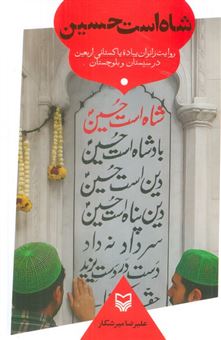 شاه است حسین
روایت زائران پیاده پاکستانی اربعین
در سیستان و بلوچستان
شاه است حسین
بادشاه است حسین
دین است حسین
دین پناه است حسین
سر داد نه داد
دست در دست یزید
حقا
علیرضا میرشکار